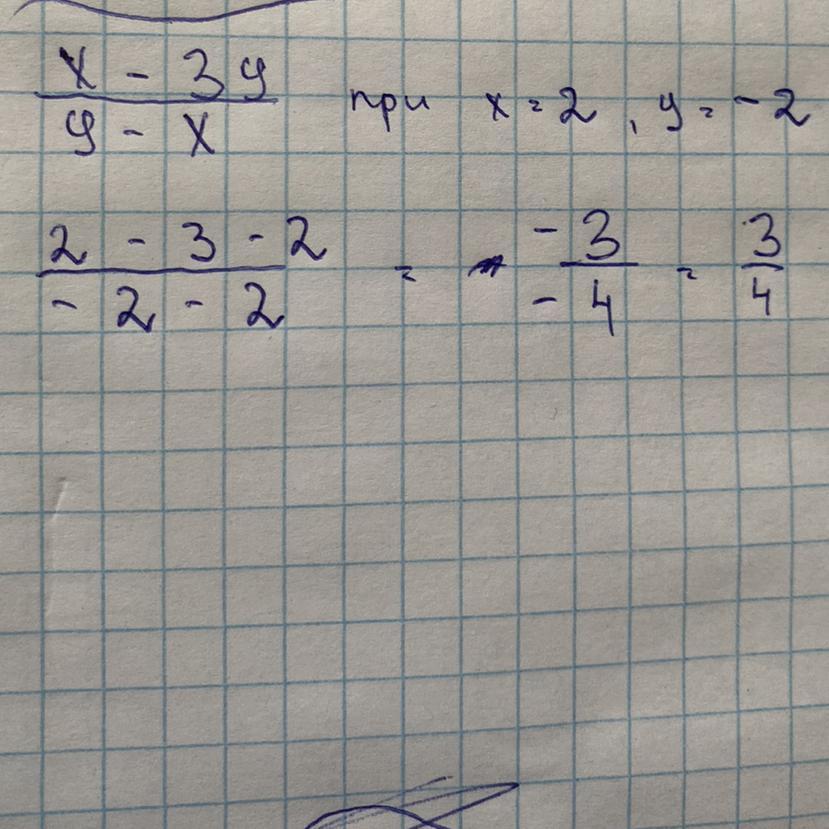 x - 3y / y - x при x = 2, y = -2
2 - 3 - 2 / - 2 - 2 = - 3 / - 4 = 3 / 4